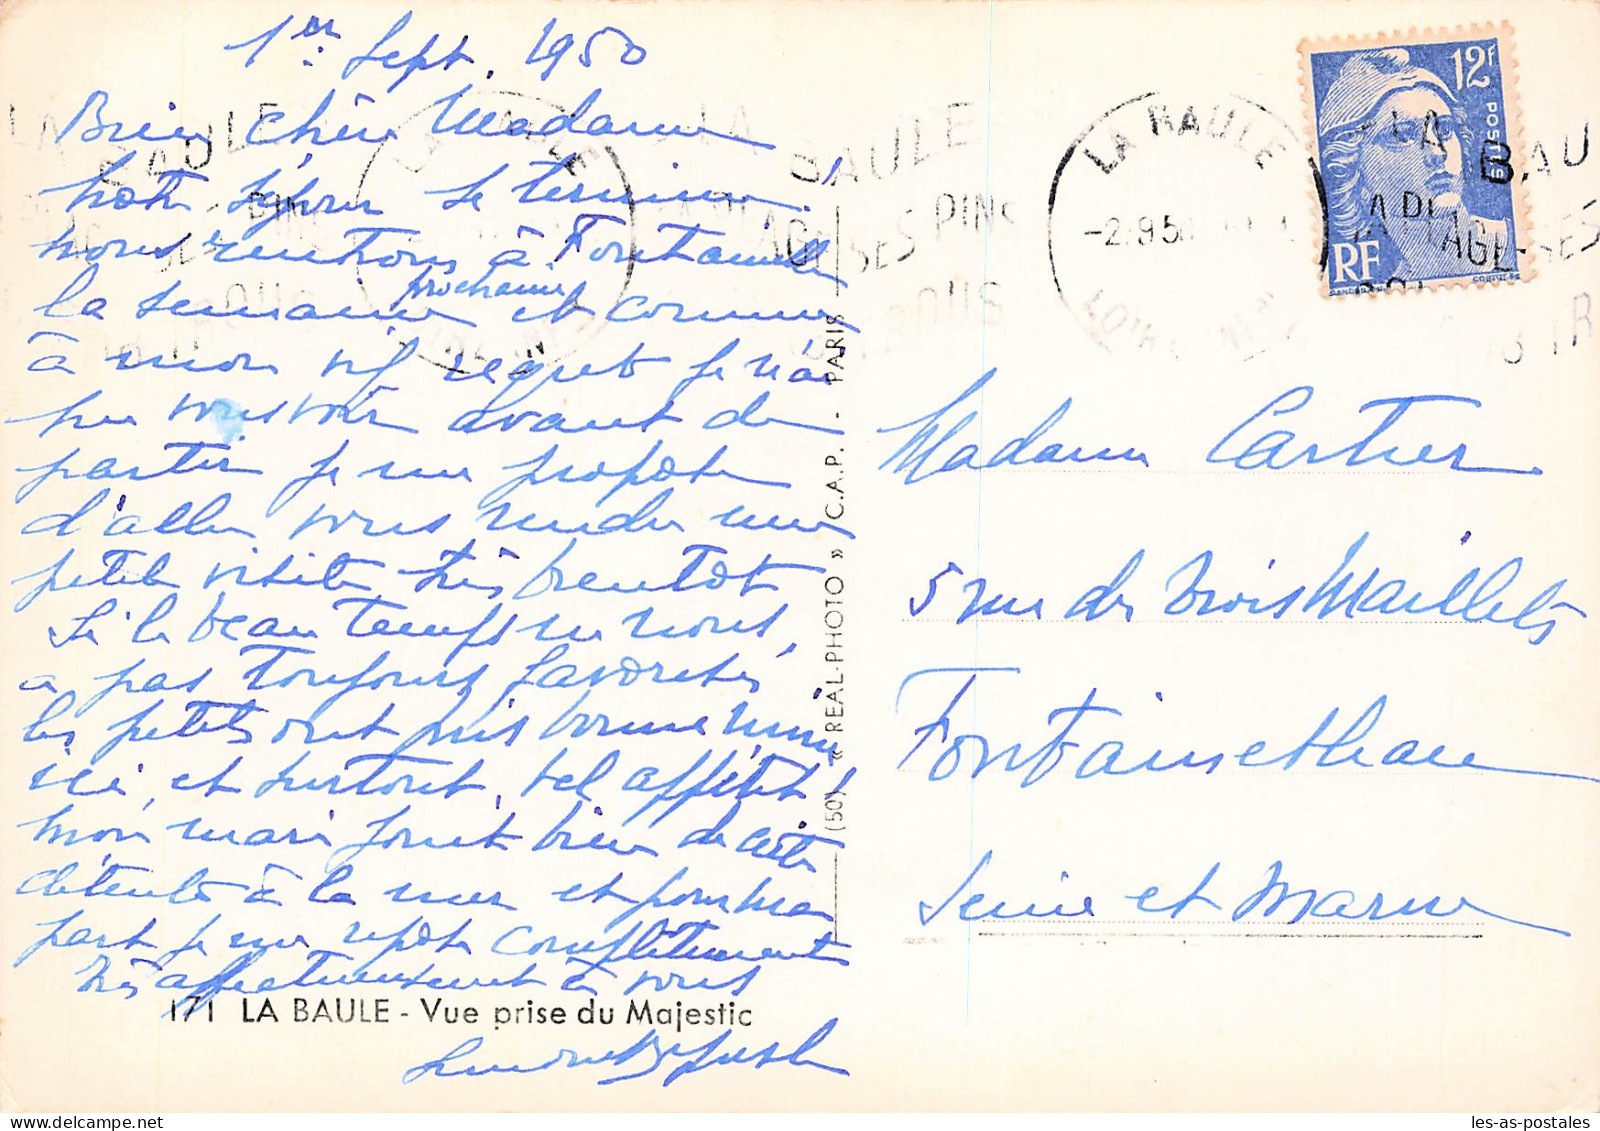 1er Sept. 1950
Bien chère Madame
Notre séjour se termine.
nous rentrons à Fontainebleau
la semaine prochaine et comme
à mon vif regret je n'ai
pu vous voir avant de
partir je me propose
d'aller vous rendre une
petite visite très bientôt
Si le beau temps ne nous
a pas toujours favorisés
les petits ont puis bonne mine
ici, et surtout, bel appétit!
mon mari jouit bien de cette
détente à la mer et pour ma
part je me repose complètement
Très affectueusement à vous
171 LA BAULE - Vue prise du Majestic
(50) « REAL-PHOTO » C.A.P. - PARIS
12F
POSTES
RF
LA BAULE
-2.9.50
LOIRE INF
LA BAULE
LA PLAGE
SES PINS
Madame Cartier
5 rue des Trois Maillets
Fontainebleau
Seine et Marne
les-as-postales